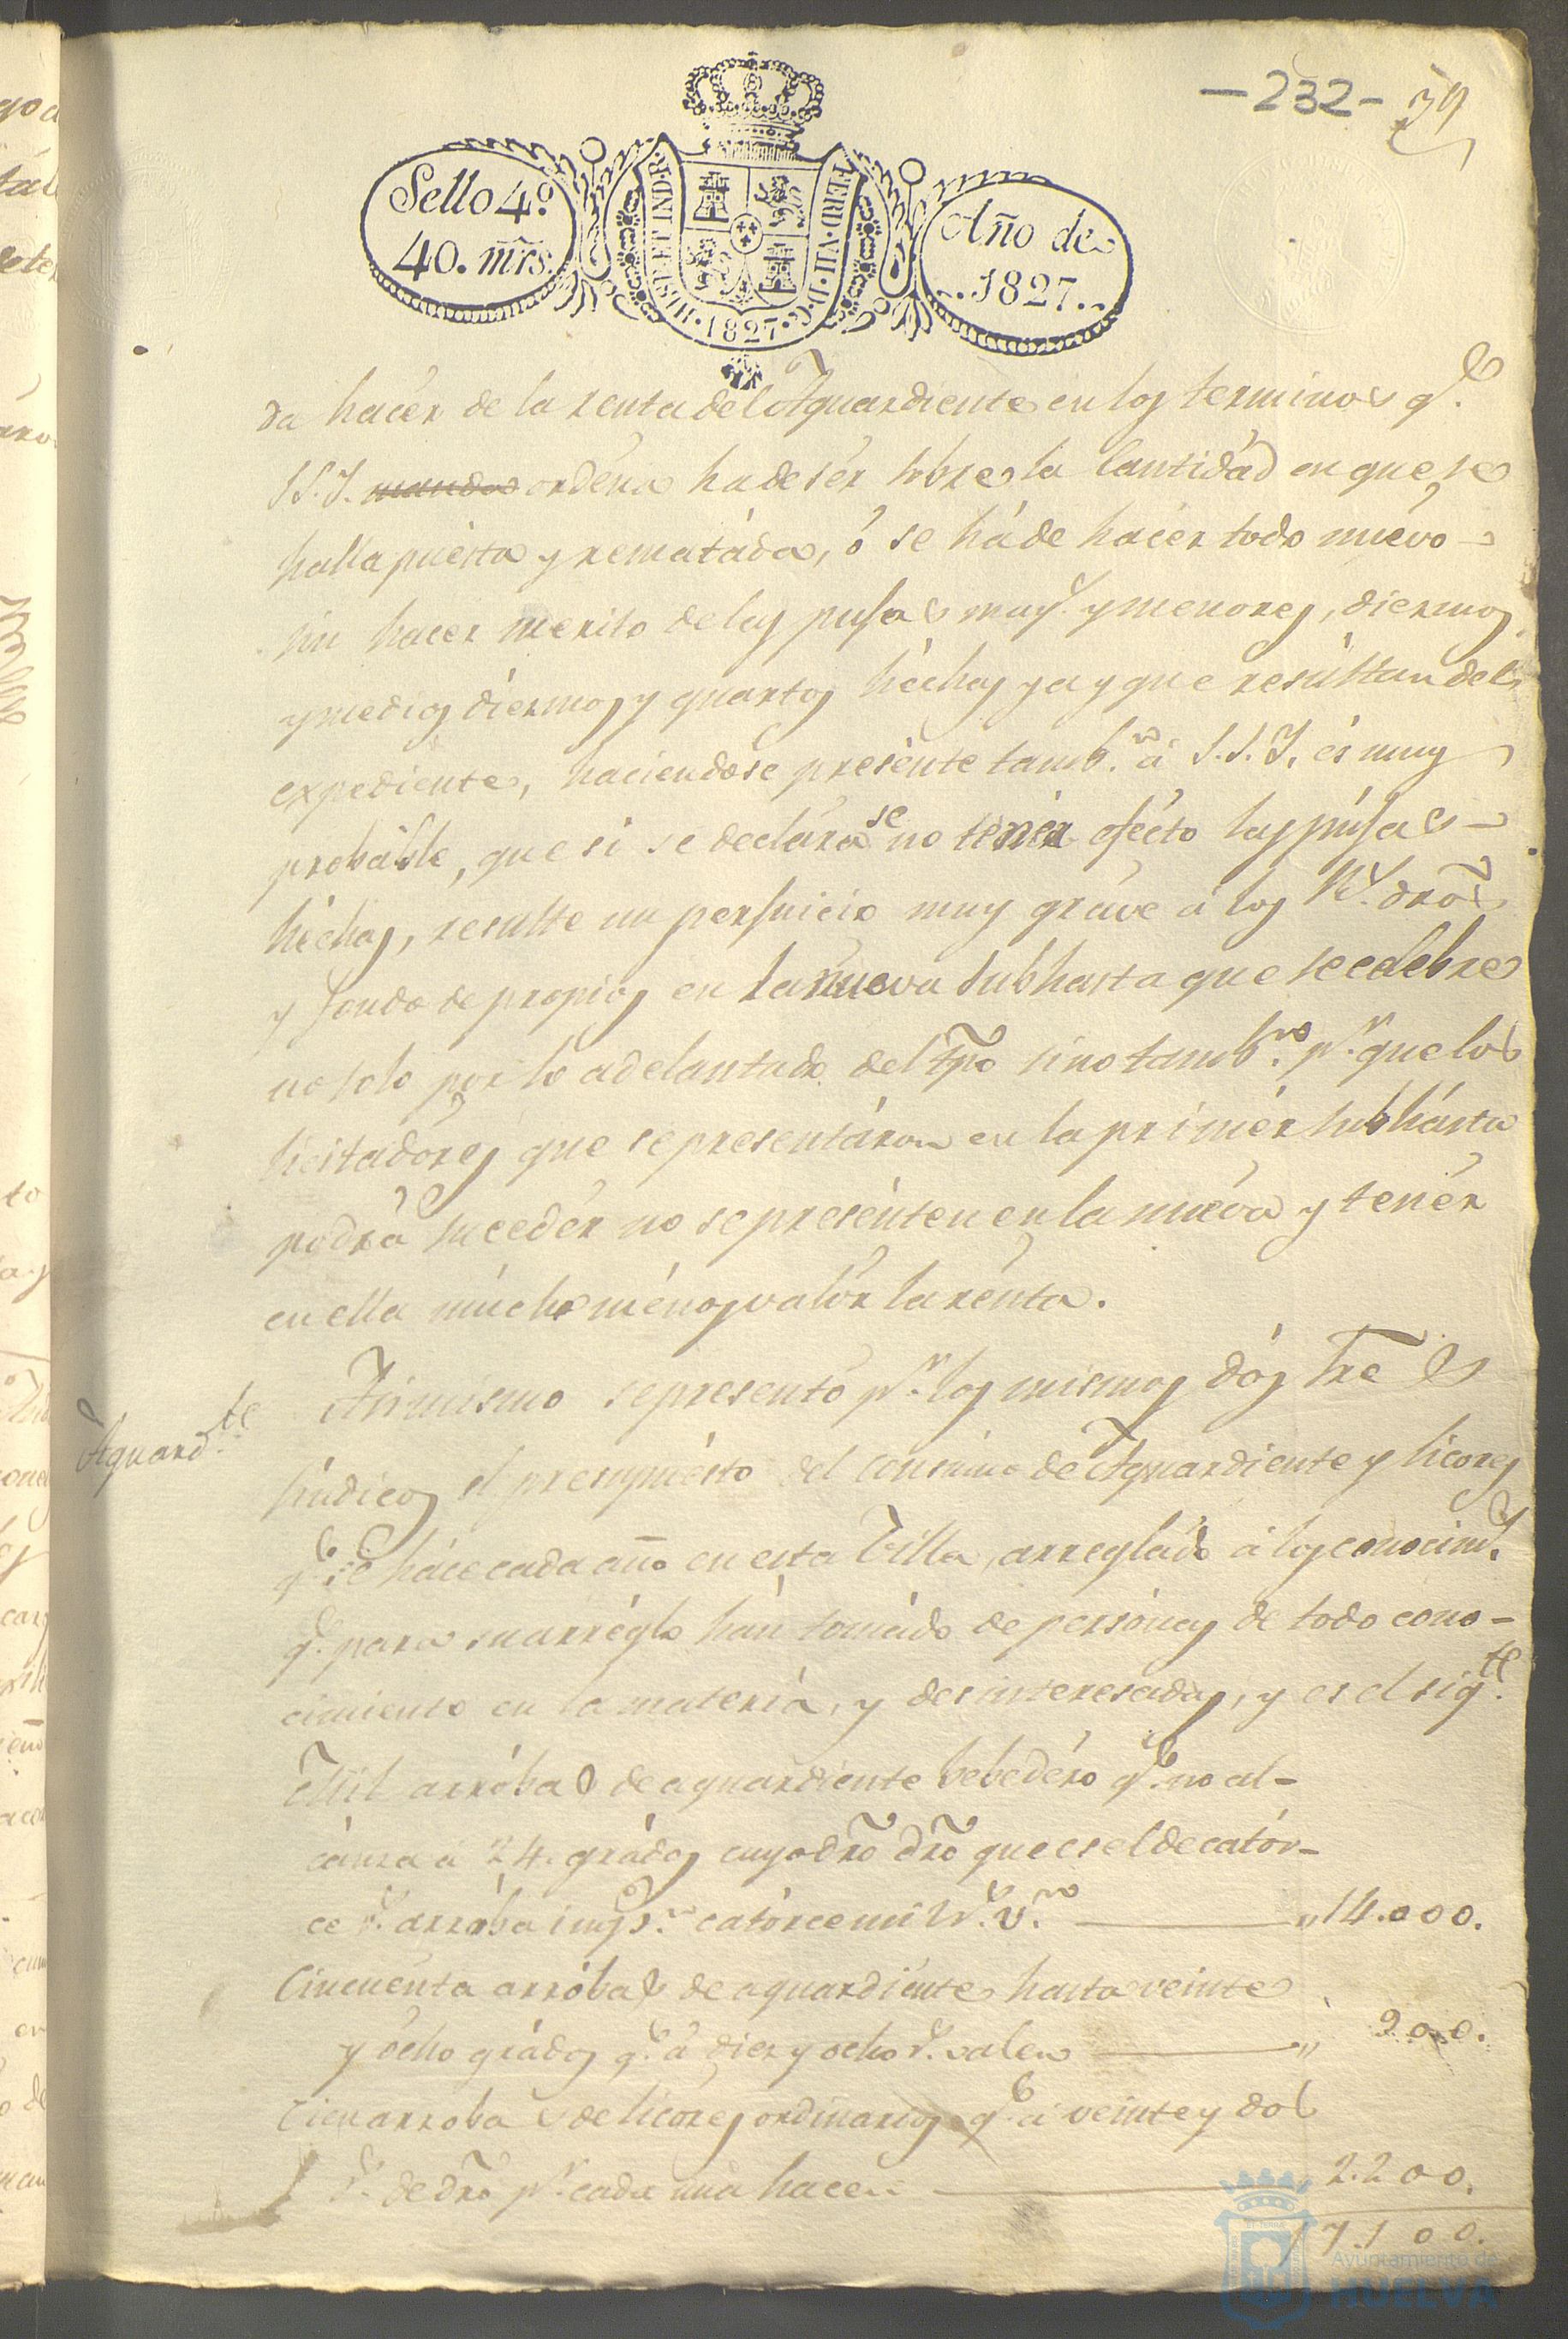 -232- 39
Sello 4º
40. mrs.
HISP. ET IND. R.
FERD. VII. D. G.
1827
Año de
1827.
da hacér de la renta del Aguardiente en los terminos q.e
S.S.Y. mando ordéna ha de sér sobre la Cantidád en que se
halla puésta y rematáda, ó se há de hacér todo nuévo
sin hacer merito de las pujas may.s y menores, diezmos
y medios diezmos y quartos héchas ya y que resúltan del
expediente, haciendose presénte tamb.n á S.S.Y. és muy
probáble, que si se declarase no tenér efécto las pújas
héchas, resulte un perjuicio muy gráve á los R.s dros
y fondo de propios en la nueva Subhasta que se celebre
no solo por lo adelantado del tpo sino tamb.n p.r que los
licitadóres que se presentáron en la primér subhásta
podrá sucedér no se presénten en la nuéva y tenér
en ella múcho ménos valór la rénta.
Aguard.te
Asimismo se presentó p.r los mismos dós Sre s
síndicos el presupuésto del consumo de Aguardiente y licores
q.e se háce cada año en esta Villa, arregládo á los conocim.s
q.e para su arréglo hán tomádo de persónas de todo cono-
cimiento en la matéria, y desinteresadas, y es el sig.te
Mil arróbas de aguardiente bebedéro q.e no al-
cánza á 24. grádos cuyo dro dro que es el de catór-
ce r.s arróba imp.n catórce mil r.s v.n " 14.000.
Cincuénta arróbas de aguardiénte hasta veinte
y ócho grádos q.e á diez y ocho r.s valen " 900.
Cien arrobas de licóres ordinarios q.e á veinte y dos
r.s de dro p.r cada una hacen 2.200.
17.100.
Ayuntamiento de
HUELVA